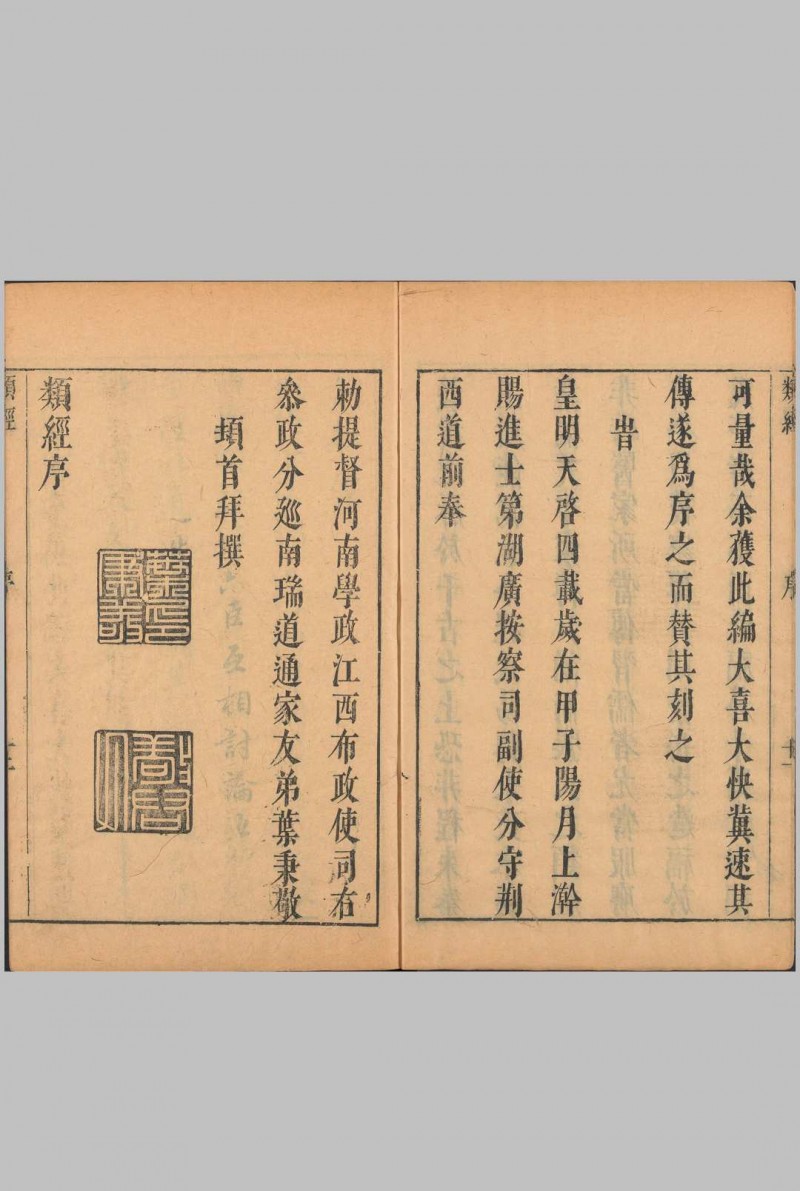 類經
序
可量哉余獲此編大喜大快冀速其
傳遂爲序之而贊其刻之
旹
皇明天啓四載歲在甲子陽月上澣
賜進士第湖廣按察司副使分守荆
西道前奉
勅提督河南學政江西布政使司右
叅政分廵南瑞道通家友弟葉秉敬
頓首拜撰
類經序
類經
序